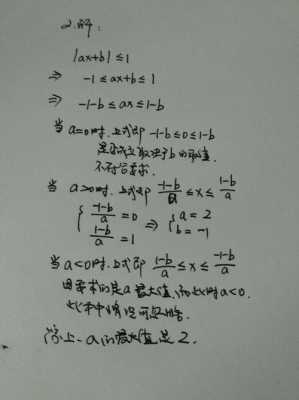 2.解:
|ax+b|≤1
⇒ -1≤ax+b≤1
⇒ -1-b≤ax≤1-b
当a=0时.上式即 -1-b≤0≤1-b
是否成立取决于b的取值.
不符合要求.
当 a>0时.上式即 \frac{-1-b}{a}≤x≤\frac{1-b}{a}
{ \frac{-1-b}{a}=0 ⇒ { a=2
\frac{1-b}{a}=1 b=-1
当a<0时.上式即 \frac{1-b}{a}≤x≤\frac{-1-b}{a}
因要求的是a最大值,而此时a<0.
故本情况可忽略.
综上.a的最大值是2.